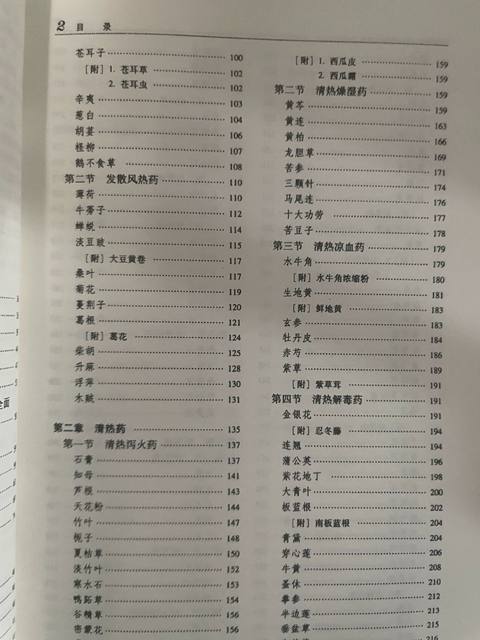 2 目 录
苍耳子 100
[附] 1. 苍耳草 102
2. 苍耳虫 102
辛夷 103
葱白 104
胡荽 106
柽柳 107
鹅不食草 108
第二节 发散风热药 110
薄荷 110
牛蒡子 112
蝉蜕 114
淡豆豉 115
[附] 大豆黄卷 117
桑叶 117
菊花 119
蔓荆子 120
葛根 121
[附] 葛花 124
柴胡 125
升麻 128
浮萍 130
木贼 131
第二章 清热药 135
第一节 清热泻火药 137
石膏 137
知母 141
芦根 143
天花粉 144
竹叶 147
栀子 148
夏枯草 150
淡竹叶 152
寒水石 153
鸭跖草 154
谷精草 156
密蒙花 156
[附] 1. 西瓜皮 159
2. 西瓜霜 159
第二节 清热燥湿药 159
黄芩 159
黄连 163
黄柏 166
龙胆草 169
苦参 171
三颗针 174
马尾连 176
十大功劳 177
苦豆子 178
第三节 清热凉血药 179
水牛角 179
[附] 水牛角浓缩粉 180
生地黄 181
[附] 鲜地黄 183
玄参 183
牡丹皮 184
赤芍 186
紫草 189
[附] 紫草茸 191
第四节 清热解毒药 191
金银花 191
[附] 忍冬藤 194
连翘 194
蒲公英 196
紫花地丁 198
大青叶 200
板蓝根 202
[附] 南板蓝根 204
青黛 204
穿心莲 206
牛黄 208
蚤休 210
拳参 212
半边莲 213
垂盆草 215
216